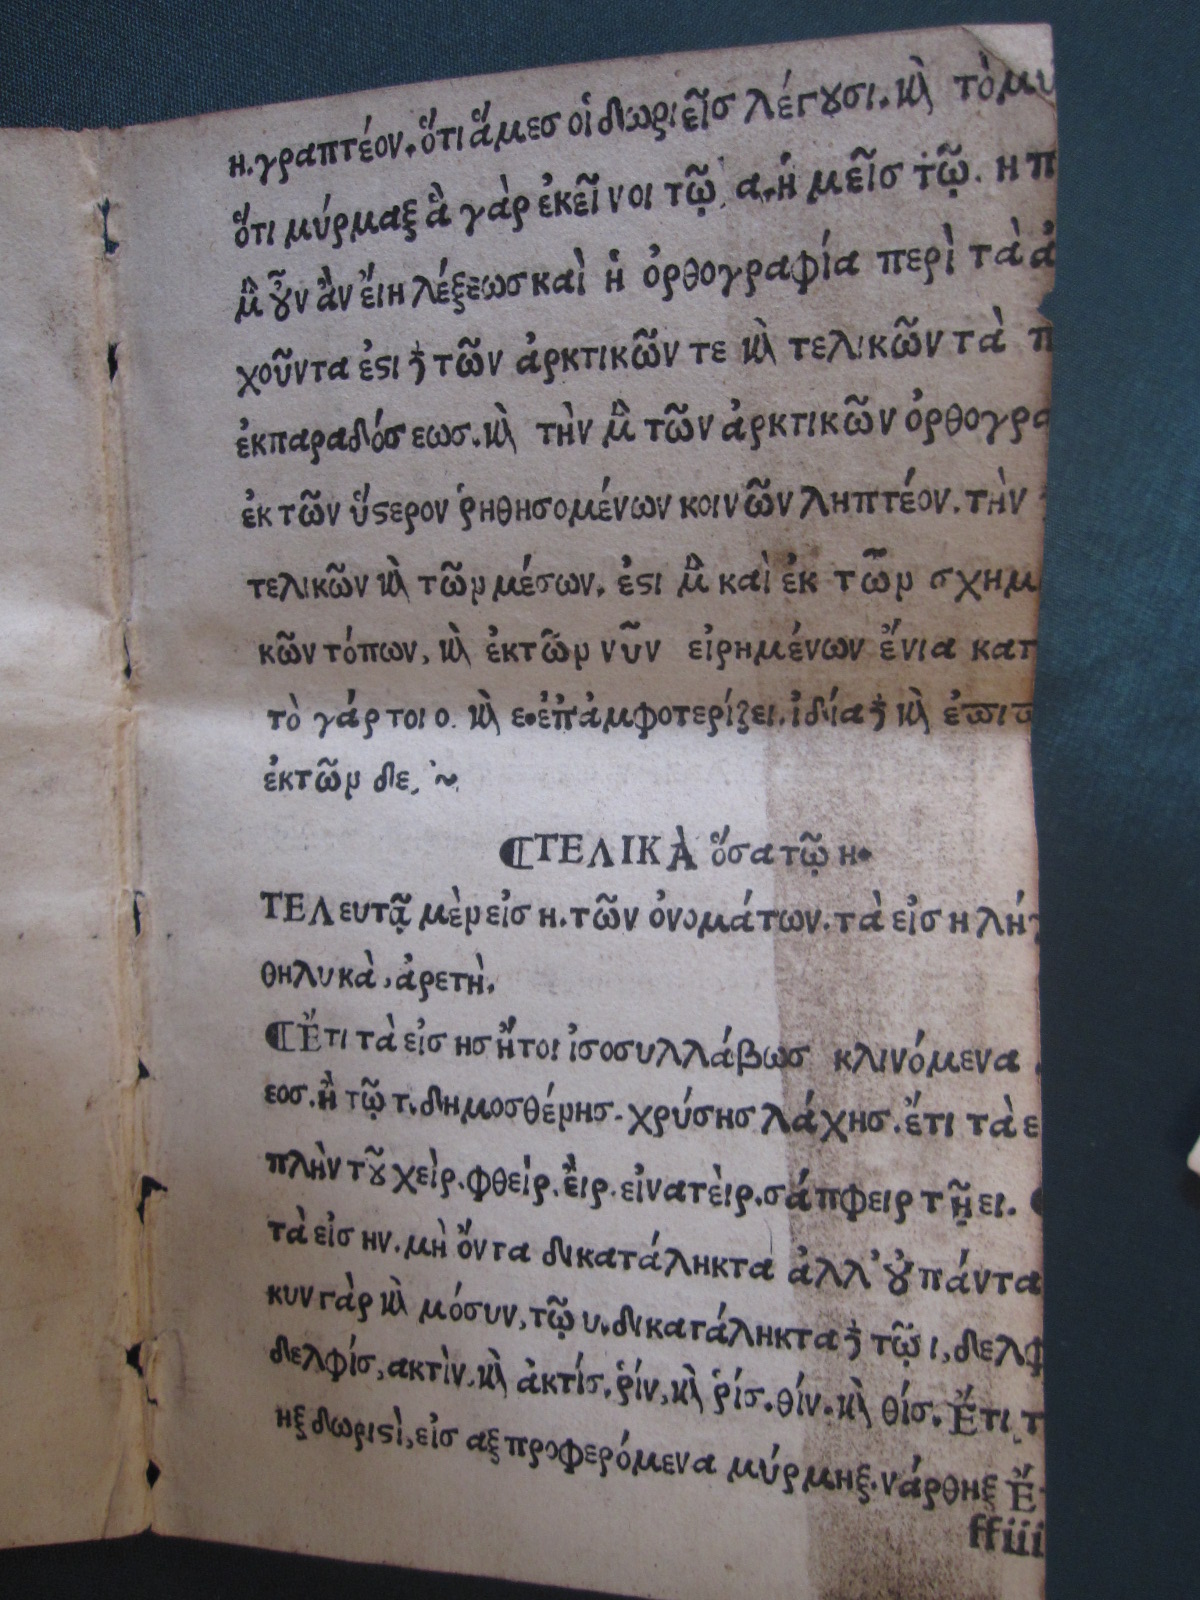 η.γραπτέον.ὅτι ἅμεσ οἱ δωριεῖσ λέγȣσι.κὶ τὸ μυ
ὅτι μύρμαξ ἃ γὰρ ἐκεῖνοι τῷ α.ἡμεῖσ τῷ. η π
μὲν ȣ̓͂ν ἂν ἔιη λέξεωσ καὶ ἡ ὀρθογραφία περὶ τὰ ἀ
χοῦντα ἐϛι δὲ τῶν ἀρκτικῶν τε κὶ τελικῶν τὰ π
ἐκπαραδόσεωσ.κὶ τὴν μὲν τῶν ἀρκτικῶν ὀρθογρα
ἐκ τῶν ὕϛερον ῥηθησομένων κοινῶν ληπτέον.τὴν
τελικῶν κὶ τῶν μέσων. ἐϛι μὲν καὶ ἐκ τῶν σχημ
κῶν τόπων, κὶ ἐκτῶν νῦν εἰρημένων ἔνια κατ
τὸ γάρ τοι ο. κὶ ε.ἐπαμφοτερίζει.ἰδία δὲ κὶ
ἐκτῶν δε.
¶ΤΕΛΙΚᾺ ὅσα τῷ η.
ΤΕΛευτᾷ μὲν εἰσ η.τῶν ὀνομάτων.τὰ εἰσ η λή
θηλυκὰ,ἀρετὴ.
¶Ἔτι τὰ εἰσ ησ ἤτοι ἰσοσυλλάβωσ κλινόμενα
εοσ.ἢ τῷ τ.δημοσθένησ.χρύσησ λάχησ.ἔτι τὰ ε
πλὴν τȣ͂ χεὶρ.φθεὶρ.ἔιρ.εἰνατὲιρ.σάπφειρ τῇ ει.
τὰ εἰσ ην.μὴ ὄντα δικατάληκτα ἀλλ᾽ ȣ̓ πάντα
κυν γὰρ κὶ μόσυν,τῷ υ.δικατάληκτα δὲ τῷ ι,δελφ
δελφίσ,ακτὶν.κὶ ἀκτίσ.ῥίν,κὶ ῥίσ.θίν.κὶ θίσ.Ἔτι τ
ηξ δωριϛὶ,εἰσ αξ προφερόμενα μύρμηξ.νάρθηξ Ἔ
ffiii